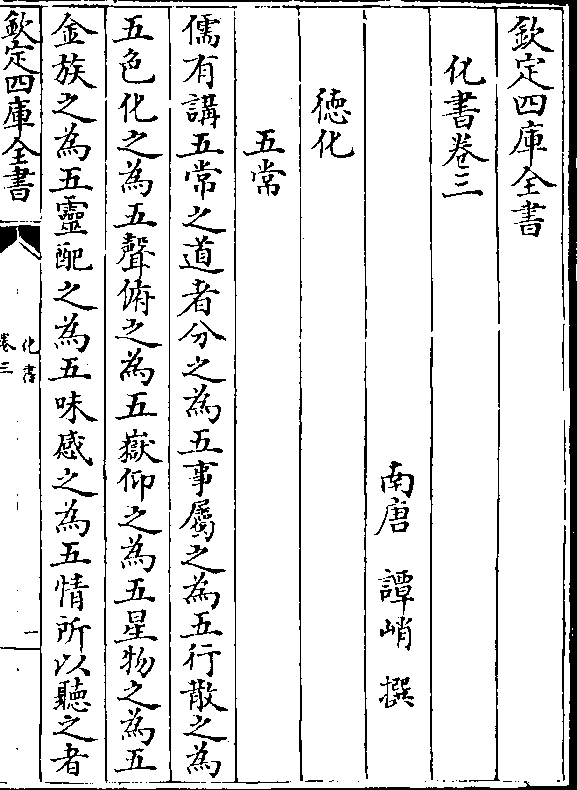 欽定四庫全書
化書卷三
南唐 譚峭 撰
徳化
五常
儒有講五常之道者分之為五事屬之為五行散之為
五色化之為五聲俯之為五嶽仰之為五星物之為五
金族之為五靈配之為五味感之為五情所以聽之者
欽定四庫全書
化書
卷三
一